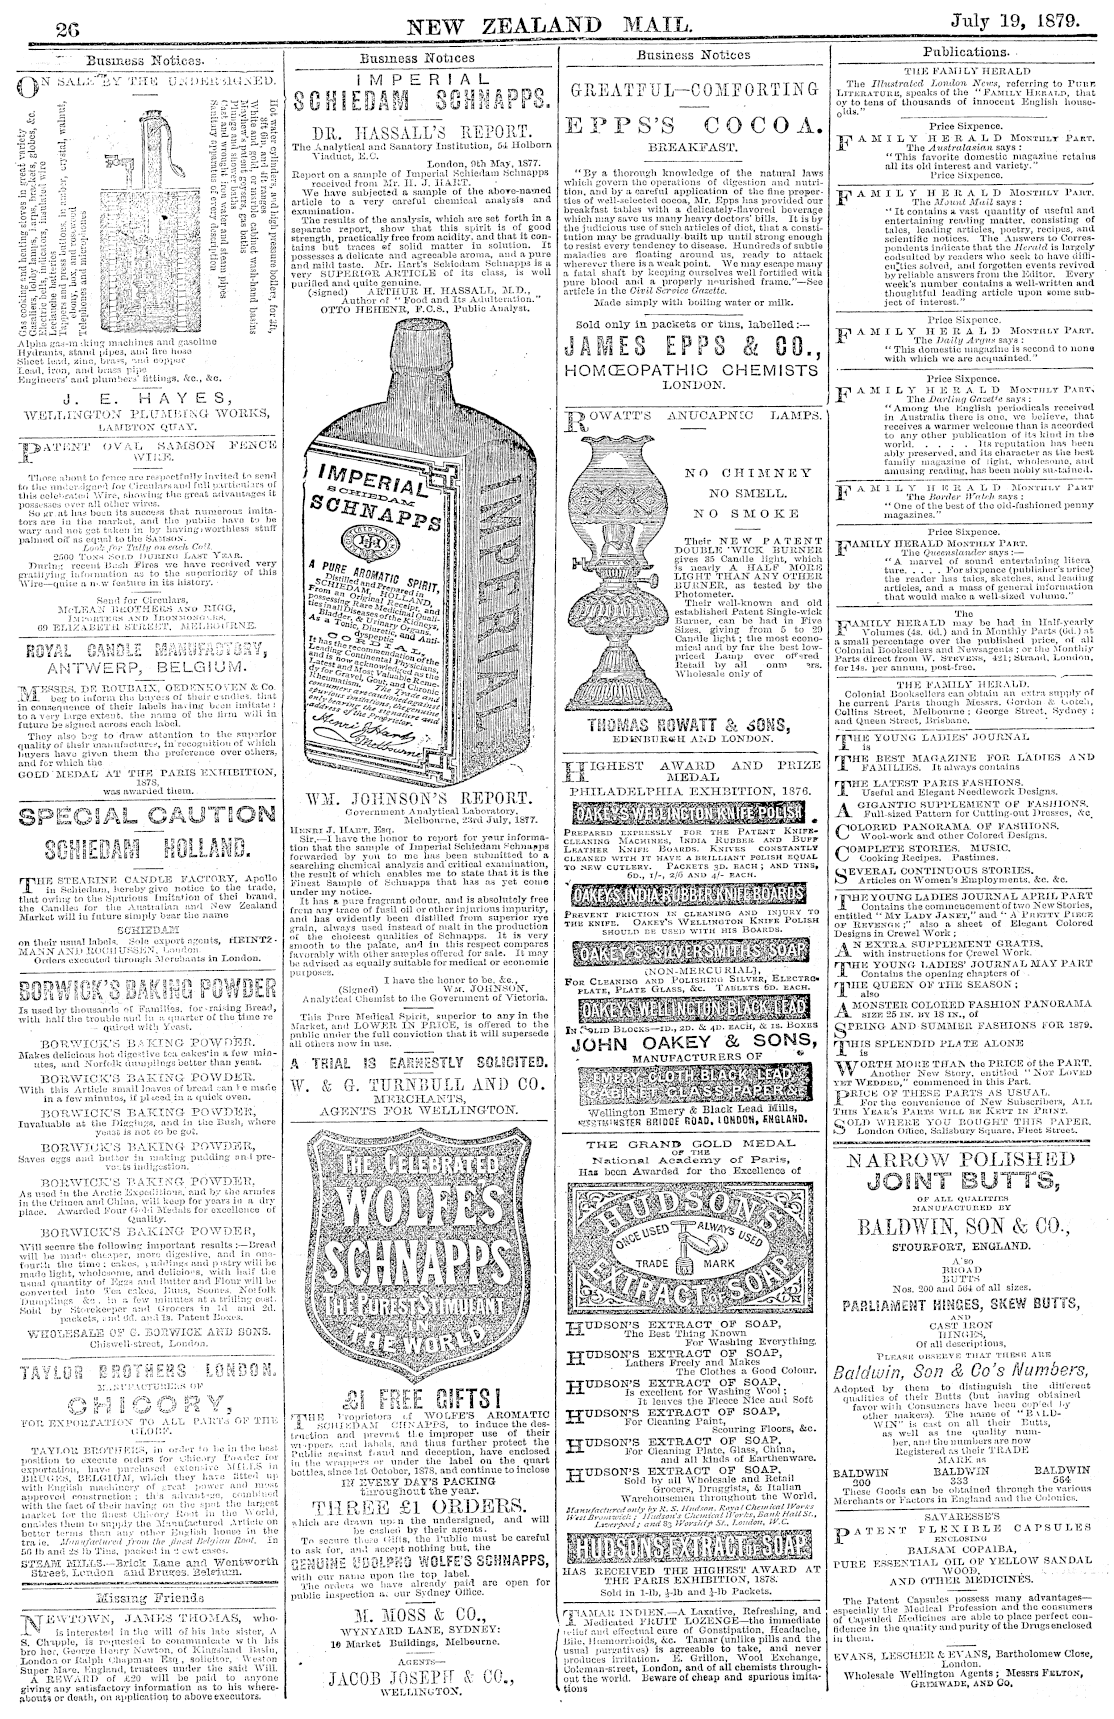 26
NEW ZEALAND MAIL.
July 19, 1879.
Business Notices.
ON SALE BY THE UNDERSIGNED.
Gas cooking and heating stoves in great variety
Gasaliers, lobby lamps, harps, brackets, globes, &c.
Electric bells, indicators, insulated wire
Leclanche batteries
Tappers and press buttons, in amber, crystal, walnut,
ebony, box, and rosewood
Telephones and microphones
Hot water cylinders, and high pressure boilers, for 3ft,
3ft 6in, and 4ft ranges
White and gold or marble cabinet wash-hand basins
Mayhew's patent geysers, gas baths
Plunge and shower baths
Cast and wrought iron water and steam pipes
Sanitary apparatus of every description
Alpha gas-making machines and gasoline
Hydrants, stand pipes, and fire hose
Sheet lead, zinc, brass, and copper
Lead, iron, and brass pipe
Engineers' and plumbers' fittings, &c., &c.
J. E. HAYES,
WELLINGTON PLUMBING WORKS,
LAMBTON QUAY.
PATENT OVAL SAMSON FENCE
WIRE.
Those about to fence are respectfully invited to send
to the undersigned for Circulars and full particulars of
this celebrated Wire, showing the great advantages it
possesses over all other wires.
So great has been its success that numerous imita-
tors are in the market, and the public have to be
wary and not get taken in by having worthless stuff
palmed off as equal to the SAMSON.
Look for Tally on each Coil.
2500 TONS SOLD DURING LAST YEAR.
During recent Bush Fires we have received very
gratifying information as to the superiority of this
Wire—quite a new feature in its history.
Send for Circulars,
McLEAN BROTHERS AND RIGG,
IMPORTERS AND IRONMONGERS,
69 ELIZABETH STREET, MELBOURNE.
ROYAL CANDLE MANUFACTORY,
ANTWERP, BELGIUM.
MESSRS. DE ROUBAIX, OEDENKOVEN & Co.
beg to inform the buyers of their candles, that
in consequence of their labels having been imitated
to a very large extent, the name of the firm will in
future be signed across each label.
They also beg to draw attention to the superior
quality of their manufactures, in recognition of which
buyers have given them the preference over others,
and for which the
GOLD MEDAL AT THE PARIS EXHIBITION,
1878,
was awarded them.
SPECIAL CAUTION
SCHIEDAM HOLLAND.
THE STEARINE CANDLE FACTORY, Apollo
in Schiedam, hereby give notice to the trade,
that owing to the Spurious Imitation of their brand,
the Candles for the Australian and New Zealand
Market will in future simply bear the name
SCHIEDAM
on their usual labels. Sole export agents, HEINTZ-
MANN AND ROCHUSSEN, London.
Orders executed through Merchants in London.
BORWICK'S BAKING POWDER
Is used by thousands of Families, for raising Bread,
with half the trouble and in a quarter of the time re
quired with Yeast.
BORWICK'S BAKING POWDER.
Makes delicious hot digestive tea cakes in a few min-
utes, and Norfolk dumplings better than yeast.
BORWICK'S BAKING POWDER.
With this Article small loaves of bread can be made
in a few minutes, if placed in a quick oven.
BORWICK'S BAKING POWDER,
Invaluable at the Diggings, and in the Bush, where
yeast is not to be got.
BORWICK'S BAKING POWDER,
Saves eggs and butter in making pudding and pre-
vents indigestion.
BORWICK'S BAKING POWDER,
As used in the Arctic Expeditions, and by the armies
in the Crimea and China, will keep for years in a dry
place. Awarded Four Gold Medals for excellence of
Quality.
BORWICK'S BAKING POWDER,
Will secure the following important results:—Bread
will be made cheaper, more digestive, and in one-
fourth the time; cakes, puddings and pastry will be
made light, wholesome, and delicious, with half the
usual quantity of Eggs and Butter and Flour will be
converted into Tea cakes, Buns, Scones, Norfolk
Dumplings &c., in a few minutes at a trifling cost.
Sold by Storekeeper and Grocers in 1d and 2d.
packets, and 6d. and 1s. Patent Boxes.
WHOLESALE OF G. BORWICK AND SONS.
Chiswell-street, London.
TAYLOR BROTHERS LONDON.
MANUFACTURERS OF
CHICORY,
FOR EXPORTATION TO ALL PARTS OF THE
GLOBE.
TAYLOR BROTHERS, in order to be in the best
position to execute orders for Chicory Powder for
exportation, have purchased extensive MILLS in
BRUGES, BELGIUM, which they have fitted up
with English machinery of great power and most
approved construction; this advantage, combined
with the fact of their having on the spot the largest
market for the finest Chicory Root in the World,
enables them to supply the Manufactured Article on
better terms than any other English house in the
trade. Manufactured from the finest Belgian Root. In
56 lb and 28 lb Tins, packed in 2 cwt cases.
STEAM MILLS.—Brick Lane and Wentworth
Street, London and Bruges, Belgium.
Missing Friends
NEWTOWN, JAMES THOMAS, who
is interested in the will of his late sister, A
S. Chapple, is requested to communicate with his
brother, George Henry Newton, of Kingsland Basin,
London or Ralph Chapman Esq, solicitor, Weston
Super Mare, England, trustees under the said Will.
A REWARD of £20 will be paid to anyone
giving any satisfactory information as to his where-
abouts or death, on application to above executors.
Business Notices
IMPERIAL
SCHIEDAM SCHNAPPS.
DR. HASSALL'S REPORT.
The Analytical and Sanatory Institution, 54 Holborn
Viaduct, E.C.
London, 9th May, 1877.
Report on a sample of Imperial Schiedam Schnapps
received from Mr. H. J. HART.
We have subjected a sample of the above-named
article to a very careful chemical analysis and
examination.
The results of the analysis, which are set forth in a
separate report, show that this spirit is of good
strength, practically free from acidity, and that it con-
tains but traces of solid matter in solution. It
possesses a delicate and agreeable aroma, and a pure
and mild taste. Mr. Hart's Schiedam Schnapps is a
very SUPERIOR ARTICLE of its class, is well
purified and quite genuine.
(Signed) ARTHUR H. HASSALL, M.D.,
Author of "Food and Its Adulteration."
OTTO HEHENR, F.C.S., Public Analyst.
IMPERIAL
SCHIEDAM
SCHNAPPS
A PURE AROMATIC SPIRIT,
Distilled and Prepared in
SCHIEDAM, HOLLAND,
From an Original Receipt, and
possessing Rare Medicinal Quali-
ties in all Diseases of the Kidneys,
Bladder, & Urinary Organs.
As a Tonic, Diuretic, and Anti-
dyspeptic
CORDIAL,
It has the recommendation of the
Leading Continental Physicians,
and is now acknowledged as the
Latest and Most Valuable Remedy
for Gravel, Gout, and Chronic
Rheumatism. The Trade against
spurious imitations, the genuine
only bearing the signature and
address of the Proprietor.
Henri J. Hart
Melbourne
IMPERIAL
WM. JOHNSON'S REPORT.
Government Analytical Laboratory,
Melbourne, 23rd July, 1877.
HENRI J. HART, Esq.
Sir,—I have the honor to report for your informa-
tion that the sample of Imperial Schiedam Schnapps
forwarded by you to me has been submitted to a
searching chemical analysis and critical examination,
the result of which enables me to state that it is the
Finest Sample of Schnapps that has as yet come
under my notice.
It has a pure fragrant odour, and is absolutely free
from any trace of fusil oil or other injurious impurity,
and has evidently been distilled from superior rye
grain, always used instead of malt in the production
of the choicest qualities of Schnapps. It is very
smooth to the palate, and in this respect compares
favorably with other samples offered for sale. It may
be advised as equally suitable for medical or economic
purposes.
I have the honor to be, &c.,
(Signed) WM. JOHNSON,
Analytical Chemist to the Government of Victoria.
This Pure Medical Spirit, superior to any in the
Market, and LOWER IN PRICE, is offered to the
public under the full conviction that it will supersede
all others now in use.
A TRIAL IS EARNESTLY SOLICITED.
W. & G. TURNBULL AND CO.
MERCHANTS,
AGENTS FOR WELLINGTON.
THE CELEBRATED
WOLFES
SCHNAPPS
THE PUREST STIMULANT
IN
THE WORLD
£1 FREE GIFTS!
THE Proprietors of WOLFE'S AROMATIC
SCHIEDAM SCHNAPPS, to induce the des-
truction and prevent the improper use of their
wrappers and labels, and thus further protect the
Public against fraud and deception, have enclosed
in the wrappers or under the label on the quart
bottles, since 1st October, 1878, and continue to inclose
IN EVERY DAY'S PACKING
throughout the year.
THREE £1 ORDERS.
which are drawn upon the undersigned, and will
be cashed by their agents.
To secure these Gifts, the Public must be careful
to ask for, and accept nothing but, the
GENUINE UDOLPHO WOLFE'S SCHNAPPS,
with our name upon the top label.
The orders we have already paid are open for
public inspection at our Sydney Office.
M. MOSS & CO.,
WYNYARD LANE, SYDNEY:
10 Market Buildings, Melbourne.
AGENTS—
JACOB JOSEPH & CO.,
WELLINGTON.
Business Notices
GREATFUL—COMFORTING
EPPS'S COCOA.
BREAKFAST.
"By a thorough knowledge of the natural laws
which govern the operations of digestion and nutri-
tion, and by a careful application of the fine proper-
ties of well-selected cocoa, Mr. Epps has provided our
breakfast tables with a delicately-flavored beverage
which may save us many heavy doctors' bills. It is by
the judicious use of such articles of diet, that a consti-
tution may be gradually built up until strong enough
to resist every tendency to disease. Hundreds of subtle
maladies are floating around us, ready to attack
wherever there is a weak point. We may escape many
a fatal shaft by keeping ourselves well fortified with
pure blood and a properly nourished frame."—See
article in the Civil Service Gazette.
Made simply with boiling water or milk.
Sold only in packets or tins, labelled:—
JAMES EPPS & CO.,
HOMŒOPATHIC CHEMISTS
LONDON.
ROWATT'S ANUCAPNIC LAMPS.
NO CHIMNEY
NO SMELL.
NO SMOKE
Their NEW PATENT
DOUBLE WICK BURNER
gives 35 Candle light, which
is nearly A HALF MORE
LIGHT THAN ANY OTHER
BURNER, as tested by the
Photometer.
Their well-known and old
established Patent Single-wick
Burner, can be had in Five
Sizes, giving from 5 to 20
Candle light; the most econo-
mical and by far the best low-
priced Lamp ever offered
Retail by all
Wholesale only of
THOMAS ROWATT & SONS,
EDINBURGH AND LONDON.
HIGHEST AWARD AND PRIZE
MEDAL
PHILADELPHIA EXHBITION, 1876.
OAKEY'S WELLINGTON KNIFE POLISH
PREPARED EXPRESSLY FOR THE PATENT KNIFE-
CLEANING MACHINES, INDIA RUBBER AND BUFF
LEATHER KNIFE BOARDS. KNIVES CONSTANTLY
CLEANED WITH IT HAVE A BRILLIANT POLISH EQUAL
TO NEW CUTLERY. PACKETS 3D. EACH; AND TINS,
6D., 1/-, 2/6 AND 4/- EACH.
OAKEY'S INDIA RUBBER KNIFE BOARDS
PREVENT FRICTION IN CLEANING AND INJURY TO
THE KNIFE. OAKEY'S WELLINGTON KNIFE POLISH
SHOULD BE USED WITH HIS BOARDS.
OAKEY'S SILVERSMITHS' SOAP
(NON-MERCURIAL),
FOR CLEANING AND POLISHING SILVER, ELECTRO-
PLATE, PLATE GLASS, &C. TABLETS 6D. EACH.
OAKEY'S WELLINGTON BLACK LEAD
IN SOLID BLOCKS—1D., 2D. & 4D. EACH, & 1S. BOXES
JOHN OAKEY & SONS,
MANUFACTURERS OF
EMERY CLOTH BLACK LEAD
CABINET GLASS PAPER &C
Wellington Emery & Black Lead Mills,
WESTMINSTER BRIDGE ROAD, LONDON, ENGLAND.
THE GRAND GOLD MEDAL
OF THE
National Academy of Paris,
Has been Awarded for the Excellence of
HUDSON'S
ONCE USED ALWAYS USED
TRADE MARK
EXTRACT OF SOAP
HUDSON'S EXTRACT OF SOAP,
The Best Thing Known
For Washing Everything.
HUDSON'S EXTRACT OF SOAP,
Lathers Freely and Makes
The Clothes a Good Colour.
HUDSON'S EXTRACT OF SOAP,
Is excellent for Washing Wool;
It leaves the Fleece Nice and Soft
HUDSON'S EXTRACT OF SOAP,
For Cleaning Paint,
Scouring Floors, &c.
HUDSON'S EXTRACT OF SOAP,
For Cleaning Plate, Glass, China,
and all kinds of Earthenware.
HUDSON'S EXTRACT OF SOAP,
Sold by all Wholesale and Retail
Grocers, Druggists, & Italian
Warehousemen throughout the World.
Manufactured only by R. S. Hudson, Royal Chemical Works
West Bromwich; Hudson's Chemical Works, Bank Hall St.,
Liverpool; and 83 Worship St., London, W.C.
HUDSONS EXTRACT OF SOAP
HAS RECEIVED THE HIGHEST AWARD AT
THE PARIS EXHIBITION, 1878.
Sold in 1-lb, ½-lb and ¼-lb Packets.
TAMAR INDIEN.—A Laxative, Refreshing, and
Medicated FRUIT LOZENGE—the immediate
relief and effectual cure of Constipation, Headache,
Bile, Hæmorrhoids, &c. Tamar (unlike pills and the
usual purgatives) is agreeable to take, and never
produces irritation. E. Grillon, Wool Exchange,
Coleman-street, London, and of all chemists through-
out the world. Beware of cheap and spurious imita-
tions
Publications.
THE FAMILY HERALD
The Illustrated London News, referring to PURE
LITERATURE, speaks of the "FAMILY HERALD, that
joy to tens of thousands of innocent English house-
holds."
Price Sixpence.
FAMILY HERALD MONTHLY PART.
The Australasian says:
"This favorite domestic magazine retains
all its old interest and variety."
Price Sixpence.
FAMILY HERALD MONTHLY PART.
The Mount Mail says:
"It contains a vast quantity of useful and
entertaining reading matter, consisting of
tales, leading articles, poetry, recipes, and
scientific notices. The Answers to Corres-
pondents indicate that the Herald is largely
cohsulted by readers who seek to have diffi-
culties solved, and forgotten events revived
by reliable answers from the Editor. Every
week's number contains a well-written and
thoughtful leading article upon some sub-
ject of interest."
Price Sixpence.
FAMILY HERALD MONTHLY PART.
The Daily Argus says:
"This domestic magazine is second to none
with which we are acquainted."
Price Sixpence.
FAMILY HERALD MONTHLY PART.
The Darling Gazette says:
"Among the English periodicals received
in Australia there is one, we believe, that
receives a warmer welcome than is accorded
to any other publication of its kind in the
world. . . . . Its reputation has been
ably preserved, and its character as the best
family magazine of light, wholesome, and
amusing reading, has been nobly sustained.
FAMILY HERALD MONTHLY PART
The Border Watch says:
"One of the best of the old-fashioned penny
magazines."
Price Sixpence.
FAMILY HERALD MONTHLY PART.
The Queenslander says:—
"A marvel of sound entertaining litera
ture. . . . . For sixpence (publisher's price)
the reader has tales, sketches, and leading
articles, and a mass of general information
that would make a well-sized volume."
The
FAMILY HERALD may be had in Half-yearly
Volumes (4s. 6d.) and in Monthly Parts (6d.) at
a small percentage over the published price, of all
Colonial Booksellers and Newsagents; or the Monthly
Parts direct from W. STEVENS, 421, Strand, London,
for 14s. per annum, post-free.
THE FAMILY HERALD.
Colonial Booksellers can obtain an extra supply of
he current Parts though Messrs. Gordon & Gotch,
Collins Street, Melbourne; George Street, Sydney;
and Queen Street, Brisbane.
THE YOUNG LADIES' JOURNAL
is
THE BEST MAGAZINE FOR LADIES AND
FAMILIES. It always contains
THE LATEST PARIS FASHIONS.
Useful and Elegant Needlework Designs.
A GIGANTIC SUPPLEMENT OF FASHIONS.
Full-sized Pattern for Cutting-out Dresses, &c.
COLORED PANORAMA OF FASHIONS.
Wool-work and other Colored Designs.
COMPLETE STORIES. MUSIC.
Cooking Recipes. Pastimes.
SEVERAL CONTINUOUS STORIES.
Articles on Women's Employments, &c. &c.
THE YOUNG LADIES JOURNAL APRIL PART
Contains the commencement of two New Stories,
entitled "MY LADY JANET," and "A PRETTY PIECE
OF REVENGE;" also a sheet of Elegant Colored
Designs in Crewel Work;
AN EXTRA SUPPLEMENT GRATIS.
with instructions for Crewel Work.
THE YOUNG LADIES' JOURNAL MAY PART
Contains the opening chapters of
THE QUEEN OF THE SEASON;
also
A MONSTER COLORED FASHION PANORAMA
SIZE 25 IN. BY 18 IN., of
SPRING AND SUMMER FASHIONS FOR 1879.
THIS SPLENDID PLATE ALONE
is
WORTH MORE THAN the PRICE of the PART.
Another New Story, entitled "NOT LOVED
YET WEDDED," commenced in this Part.
PRICE OF THESE PARTS AS USUAL.
For the convenience of New Subscribers, ALL
THIS YEAR'S PARTS WILL BE KEPT IN PRINT.
SOLD WHERE YOU BOUGHT THIS PAPER.
London Office, Salisbury Square, Fleet Street.
NARROW POLISHED
JOINT BUTTS,
OF ALL QUALITIES
MANUFACTURED BY
BALDWIN, SON & CO.,
STOURPORT, ENGLAND.
Also
BROAD
BUTTS
Nos. 200 and 564 of all sizes.
PARLIAMENT HINGES, SKEW BUTTS,
AND
CAST IRON
HINGES,
Of all descriptions,
PLEASE OBSERVE THAT THESE ARE
Baldwin, Son & Co's Numbers,
Adopted by them to distinguish the different
qualities of their Butts (but having obtained
favor with Consumers have been copied by
other makers). The name of "BALD-
WIN" is cast on all their Butts,
as well as the quality num-
ber, and the numbers are now
Registered as their TRADE
MARK as
BALDWIN BALDWIN BALDWIN
200 333 564
These Goods can be obtained through the various
Merchants or Factors in England and the Colonies.
SAVARESSE'S
PATENT FLEXIBLE CAPSULES
ENCLOSING
BALSAM COPAIBA,
PURE ESSENTIAL OIL OF YELLOW SANDAL
WOOD,
AND OTHER MEDICINES.
The Patent Capsules possess many advantages—
especially the Medical Profession and the consumers
of Capsuled Medicines are able to place perfect con-
fidence in the quality and purity of the Drugs enclosed
in them.
EVANS, LESCHER & EVANS, Bartholomew Close,
London.
Wholesale Wellington Agents; Messrs FELTON,
GRIMWADE, AND Co.